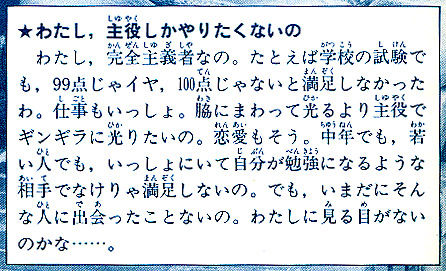 ★わたし，主役しかやりたくないの
わたし，完全主義者なの。たとえば学校の試験で
も，99点じゃイヤ，100点じゃないと満足しなかった
わ。仕事もいっしょ。脇にまわって光るより主役で
ギンギラに光りたいの。恋愛もそう。中年でも，若
い人でも，いっしょにいて自分が勉強になるような
相手でなけりゃ満足しないの。でも，いまだにそん
な人に出会ったことないの。わたしに見る目がない
のかな……。